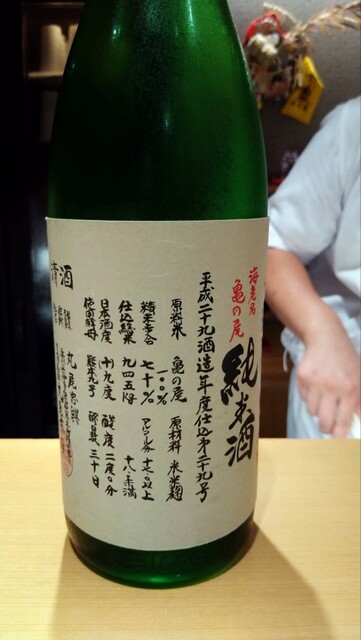 海老名
亀の尾
純米酒
平成二十九酒造年度仕込第二十九号
原料米 亀の尾 一〇〇% 原材料 米 米麹
精米歩合 七十% アルコール分 十七、〇以上
仕込総米 九四五kg 十八、〇未満
日本酒度 (+)九度 酸度 二、〇分
使用酵母 熊本九号 醪日数 三十日
清酒
丸尾忠興